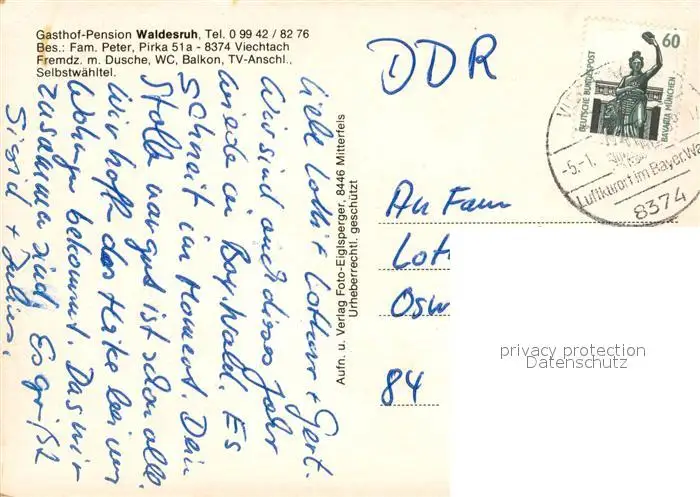 Gasthof-Pension Waldesruh, Tel. 0 99 42 / 82 76
Bes.: Fam. Peter, Pirka 51a - 8374 Viechtach
Fremdz. m. Dusche, WC, Balkon, TV-Anschl.,
Selbstwähltel.
Liebe Lotti + Lothar + Gert.
Wir sind auch dieses Jahr
wieder in Bay. Wald. Es
schneit im Moment. Dein
Stolle war gut ist schon alle.
Wir hoffen das Heike bei uns
Wohnung bekommt. Das wir
zusammen sind. Es grüßt
Sigrid + Julius.
Aufn. u. Verlag Foto-Eiglsperger, 8446 Mitterfels
Urheberrechtl. geschützt
DDR
60
DEUTSCHE BUNDESPOST
BAVARIA MÜNCHEN
-5.-1.
Luftkurort im Bayer. Wa
8374
An Fam
Lot
Osw
84
privacy protection
Datenschutz